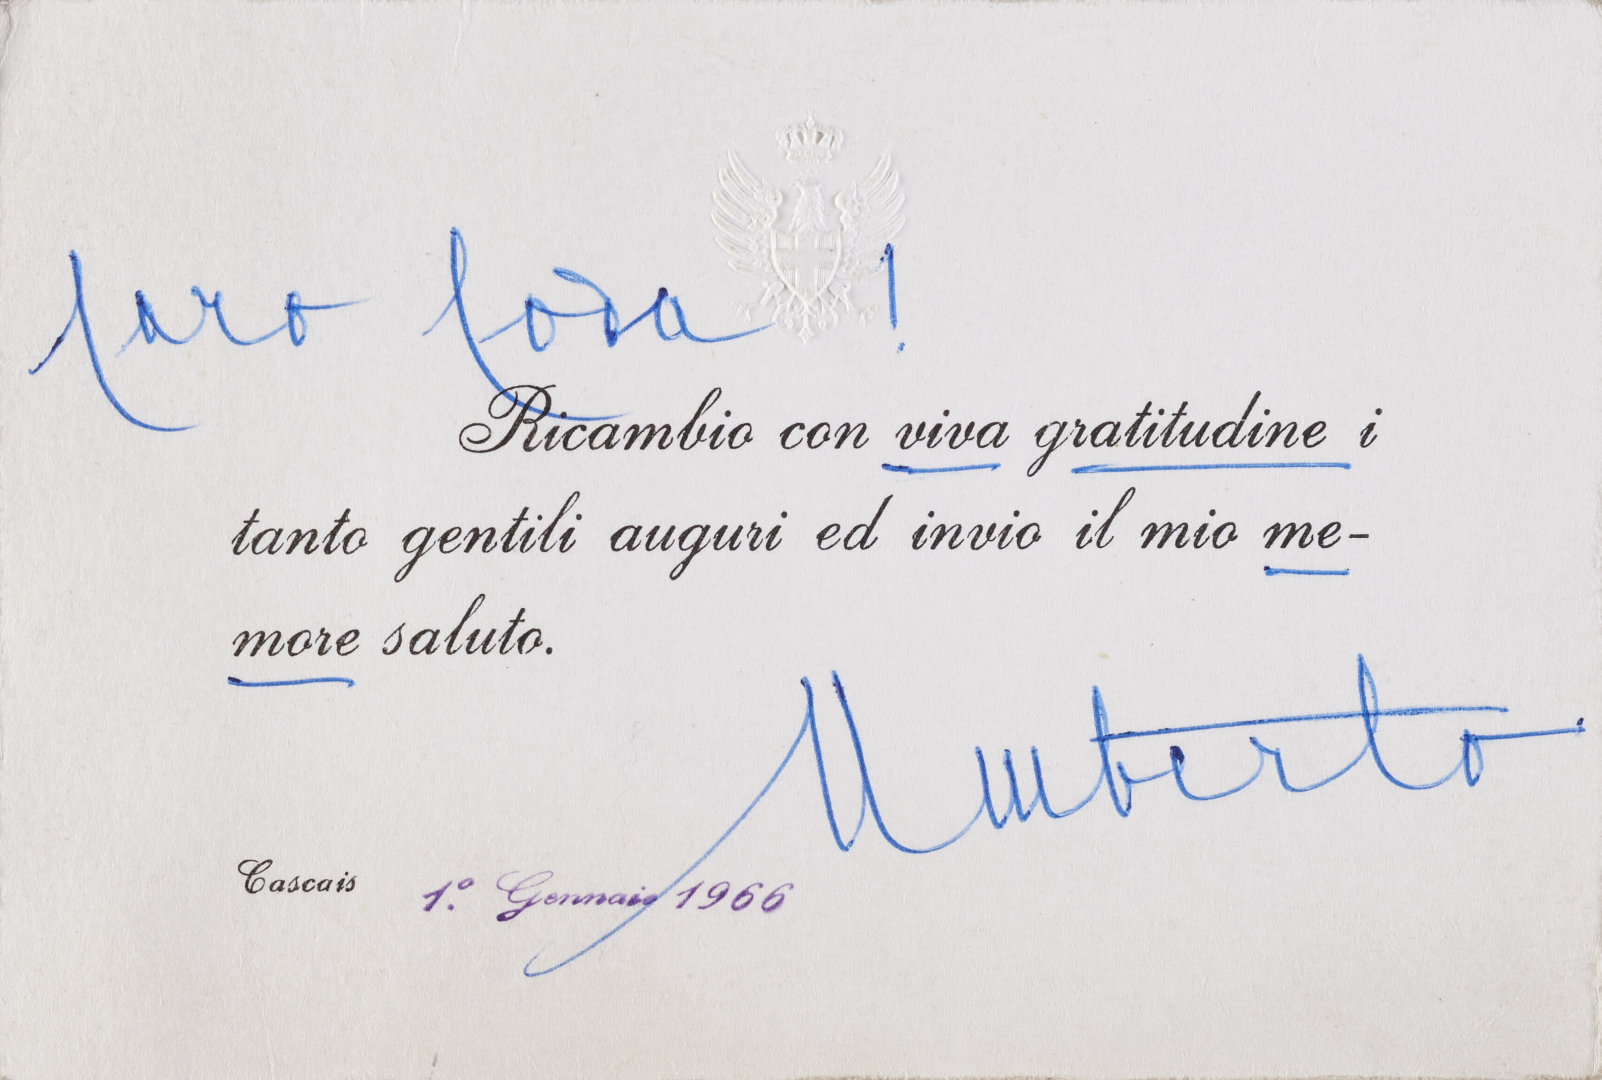 Caro Coda !
Ricambio con viva gratitudine i
tanto gentili auguri ed invio il mio me-
more saluto.
Umberto
Cascais 1.º Gennaio 1966